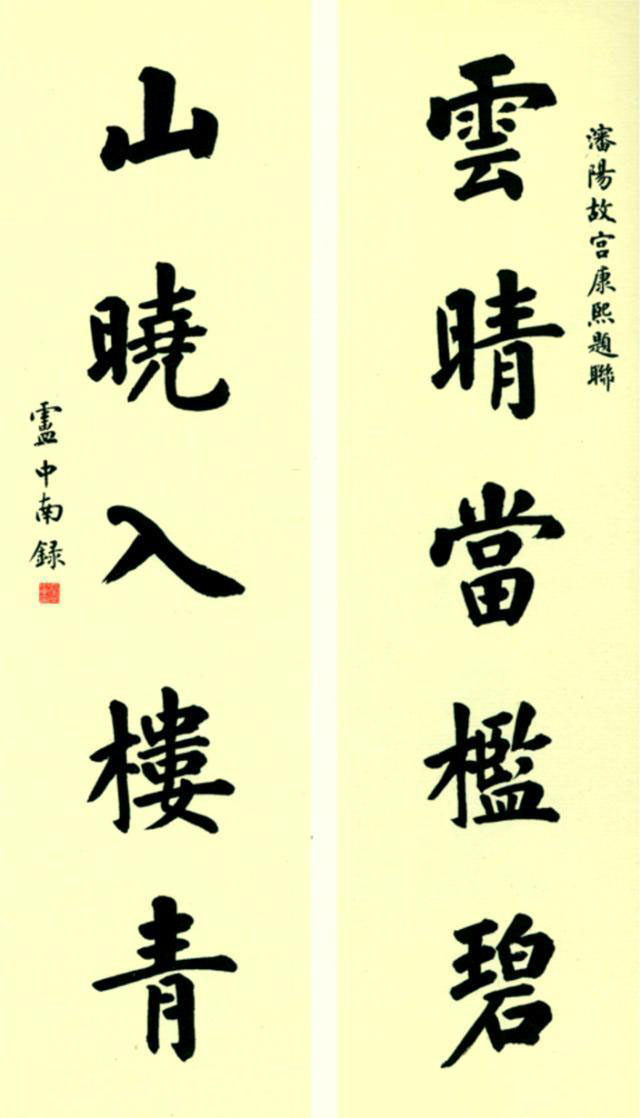 瀋陽故宫康熙題聯
雲晴當檻碧
山曉入樓青
盧中南録